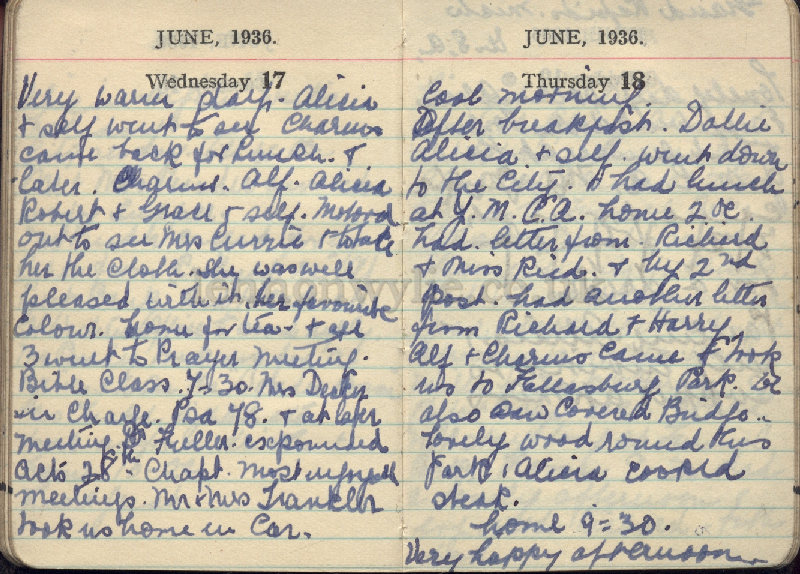 JUNE, 1936.
Wednesday 17
Very warm day. Alicia
& self went to see Charms
came back for Lunch. &
later. Alf. Alicia
Robert & Grace & self. Motored
out to see Mrs Currie & to take
her the Cloth. She was well
pleased with it, her favourite
Colour. home for tea - & aft
3 went to Prayer Meeting.
Bible Class. 7=30. Mrs
in Charge. Psa 78. & at aft
meeting Fuller. expounded
Acts 28th Chapt. Most
meetings. Mr & Mrs Frankler
took us home in Car.
JUNE, 1936.
Thursday 18
Cool morning.
After breakfast. Dollie
Alicia & self. went down
to the City. & had lunch
at Y. M. C. A. home 2 oc.
had. letter from. Richard
& Miss Ried. & by 2nd
Post. had another letter
from Richard & Harry
Alf & Charms Came & took
us to Park. we
also saw Covered Bridge..
lovely wood round this
Park, Alicia cooked
steak.
home 9=30.
Very happy afternoon.